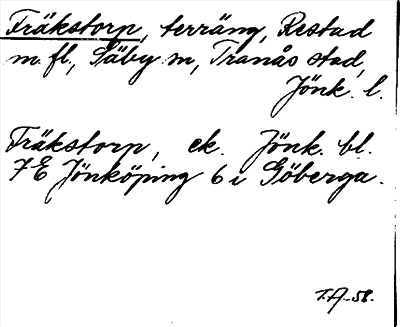 Fräkstorp, terräng, Restad
m. fl., Säby sn, Tranås stad,
Jönk. l.
Fräkstorp, ek. Jönk. bl.
7E Jönköping 6 i Göberga.
T.A-58.